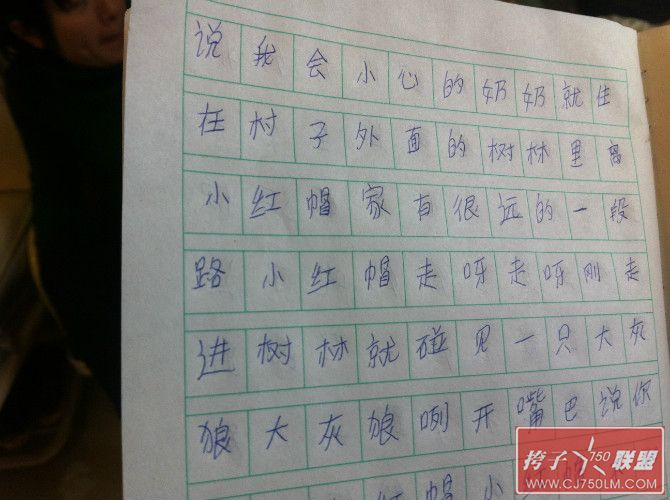 说我会小心的奶奶就住
在村子外面的树林里离
小红帽家有很远的一段
路小红帽走呀走呀刚走
进树林就碰见一只大灰
狼大灰狼咧开嘴巴说你
红帽小
挎子750联盟
www.CJ750LM.COM